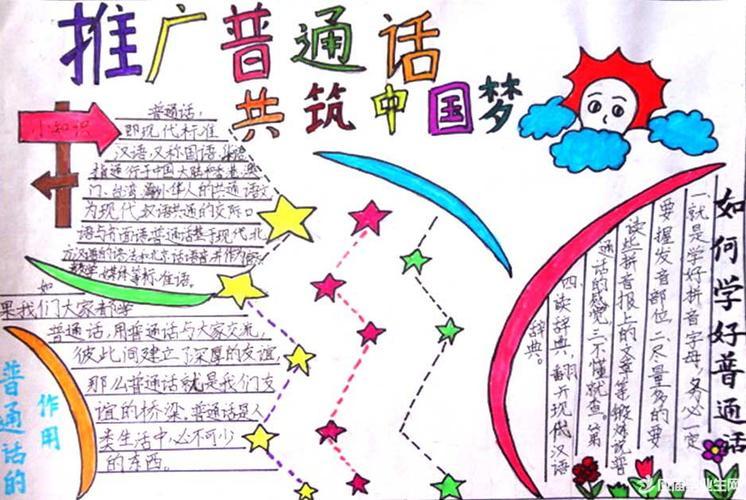 推广普通话
共筑中国梦
小知识
普通话，
即现代标准
汉语，又称国语、华语，
指通行于中国大陆和香港、澳
门、台湾、海外华人的共通语文
为现代汉语共通的交际口
语与书面语。普通话基于现代北
方汉语的语法和北京话语音
媒体等标准语。
如
果我们大家都学
普通话，用普通话与大家交流，
彼此间建立了深厚的友谊
那么普通话就是我们友
谊的桥梁。普通话是人
类生活中，必不可少
的东西。
普通话的
作用
如何学好普通话
一就是学好拼音字母，务必一定
要握发音部位二.尽量多的要
读些拼音报上的文章等锻炼说普
通话的感觉三不懂就查。第
四读辞典，翻开现代汉语
辞典。